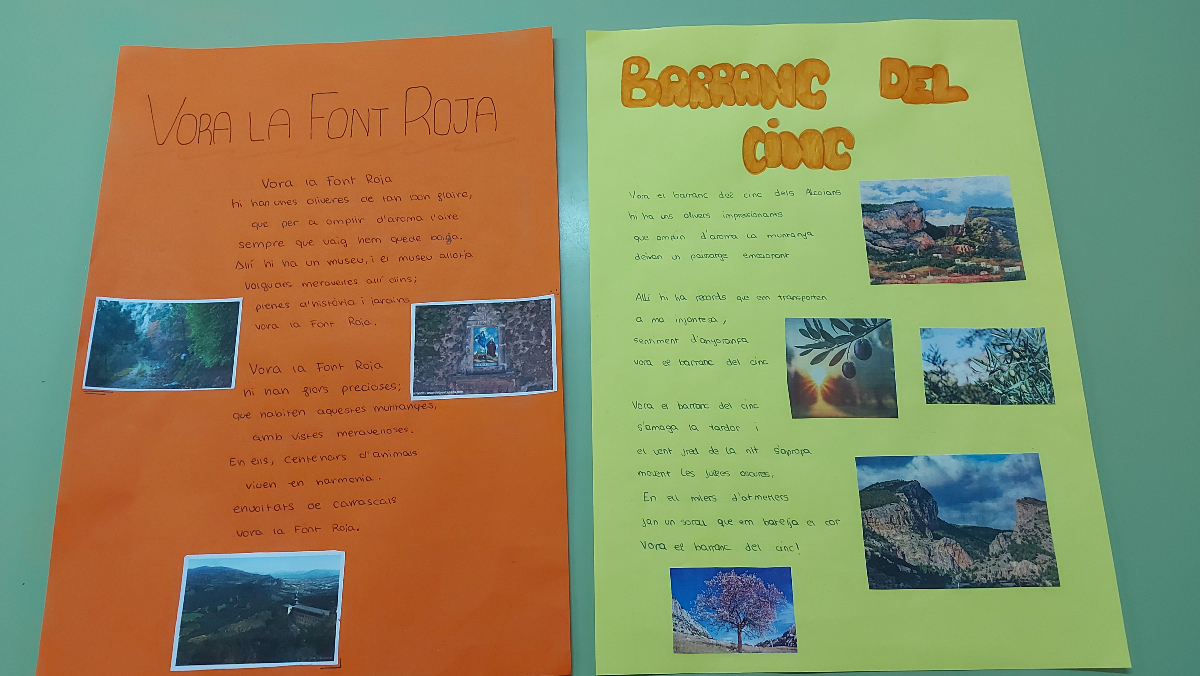 VORA LA FONT ROJA
Vora la Font Roja
hi han unes oliveres de tan bon flaire,
que per a omplir d'aroma l'aire
sempre que vaig hem quede boija.
Allí hi ha un museu, i el museu allotja
valguars meravelles allí dins;
plenes d'història i jardins
vora la Font Roja.
Vora la Font Roja
hi han flors precioses;
que habiten aquestes muntanyes,
amb vistes meravelloses.
En ells, centenars d'animals
viuen en harmonia.
envoltats de carrascals
vora la Font Roja.
BARRANC DEL
CINC
Vora el barranc del cinc dels Alcoians
hi ha uns olivers impresionams
que omplin d'aroma la muntanya
deixan un paisatge emocionant
Allí hi ha records que em transporten
a ma infantesa,
sentiment d'anyorança
vora el barranc del cinc
Vora el barranc del cinc
s'amaga la tardor i
el vent fred de la nit s'apropa
movent les fulles oscures.
En ell milers d'atmetlers
fan un soroll que em bateja el cor
Vora el barranc del cinc!